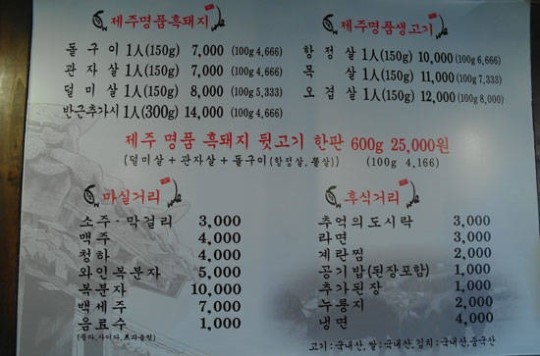 제주명품흑돼지
돌구이 1人(150g) 7,000 (100g 4,666)
관자살 1人(150g) 7,000 (100g 4,666)
덜미살 1人(150g) 8,000 (100g 5,333)
반근추가시 1人(300g) 14,000 (100g 4,666)
제주명품생고기
항정살 1人(150g) 10,000 (100g 6,666)
목살 1人(150g) 11,000 (100g 7,333)
오겹살 1人(150g) 12,000 (100g 8,000)
제주 명품 흑돼지 뒷고기 한판 600g 25,000원
(덜미살 + 관자살 + 돌구이 (항정살, 뽈살)) (100g 4,166)
마실거리
소주·막걸리 3,000
맥주 4,000
청하 4,000
와인복분자 5,000
복분자 10,000
백세주 7,000
음료수 1,000
후식거리
추억의도시락 3,000
라면 3,000
계란찜 2,000
공기밥(된장포함) 1,000
추가된장 1,000
누룽지 2,000
냉면 4,000
고기:국내산, 쌀:국내산, 김치:국내산, 중국산